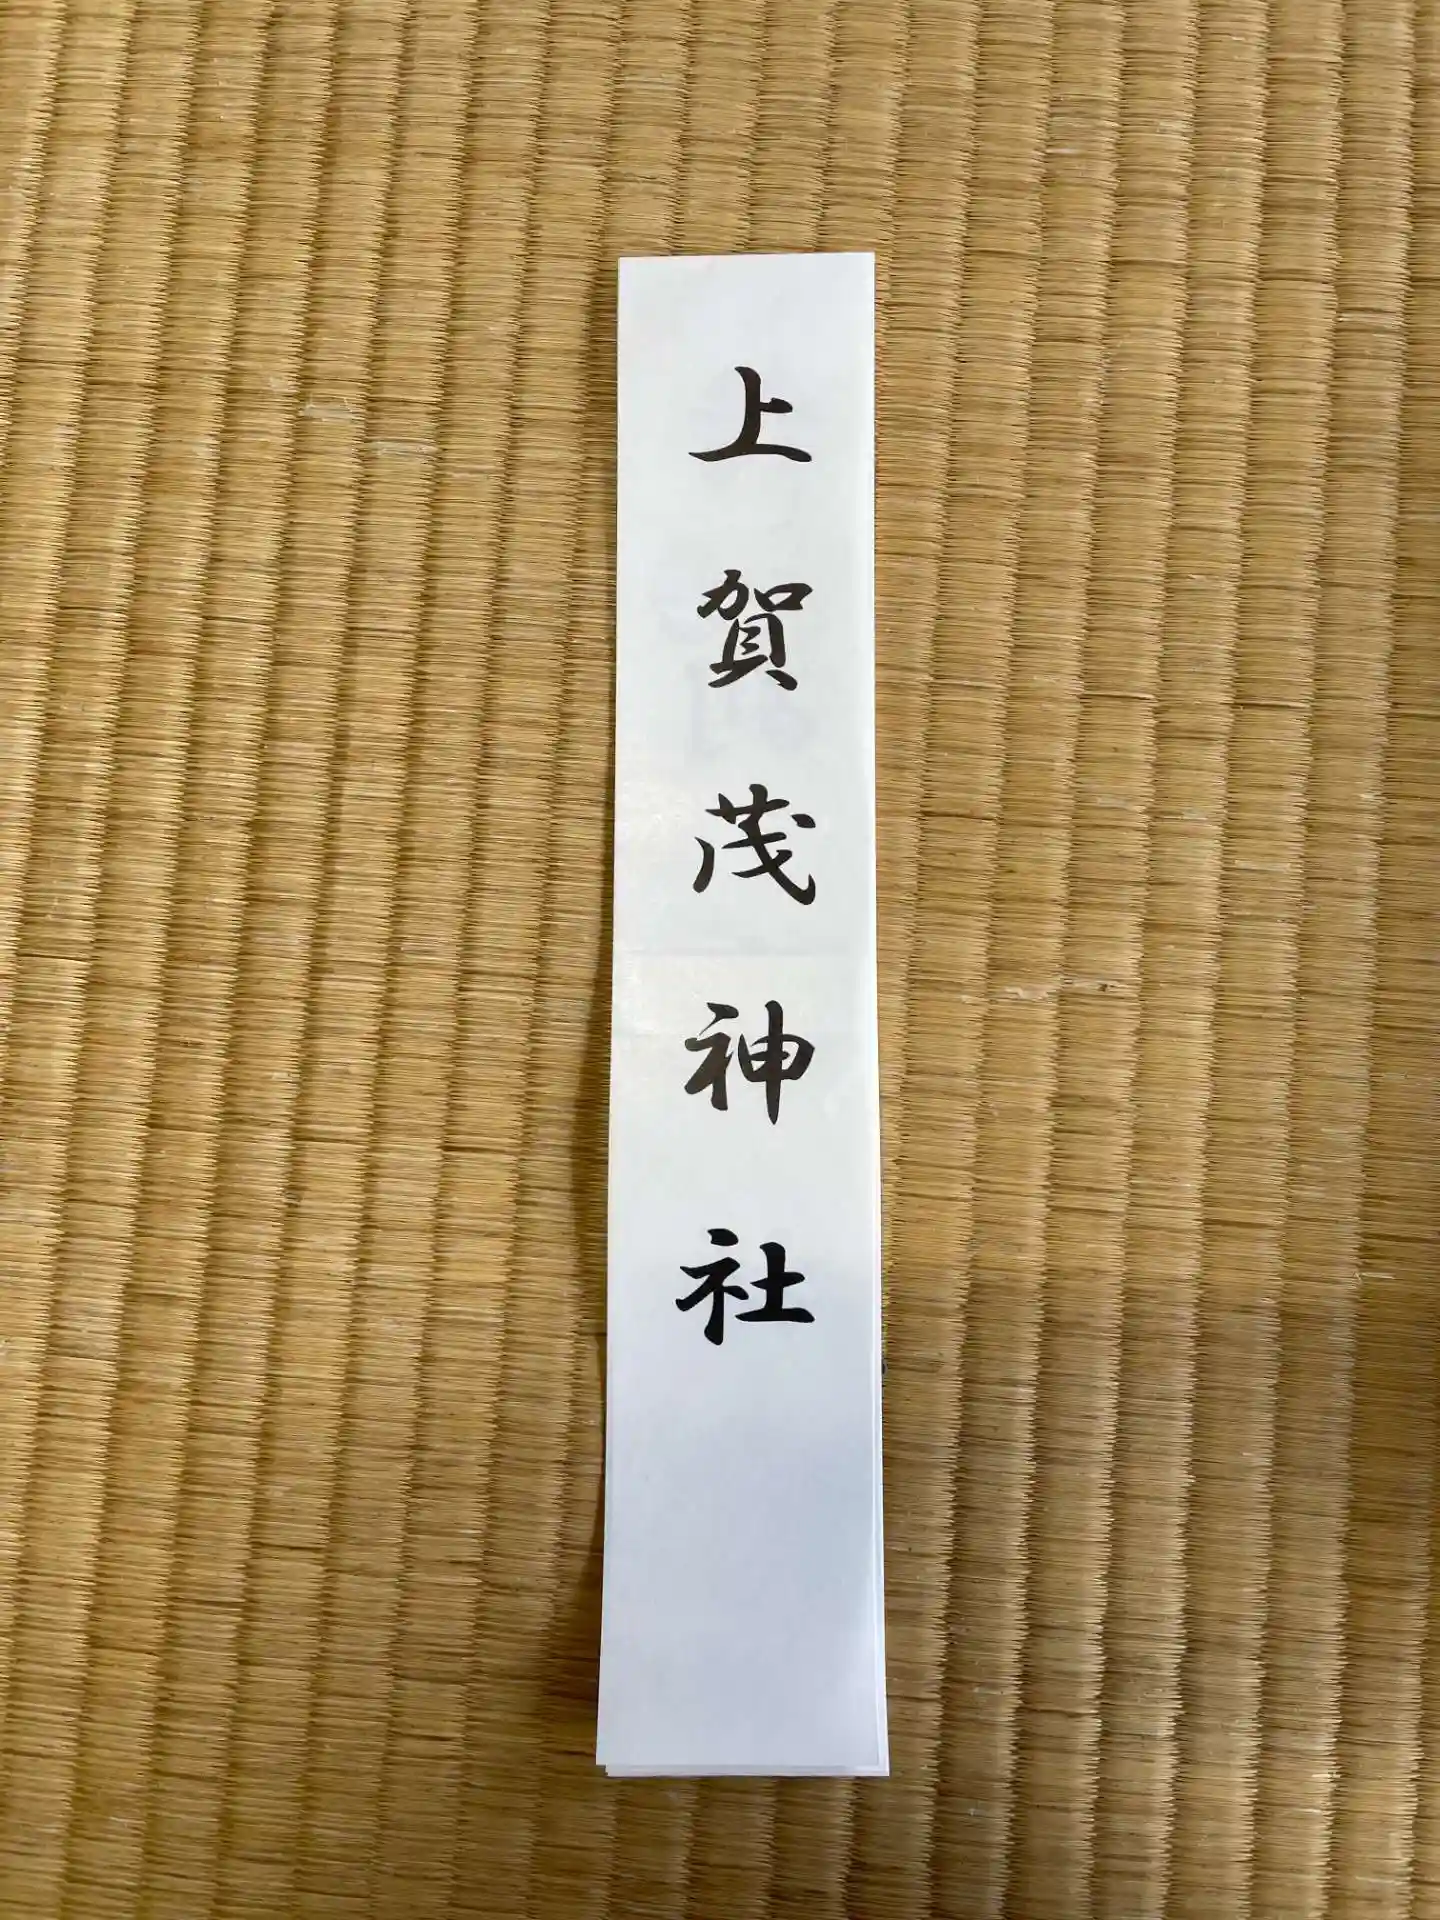 上賀茂神社